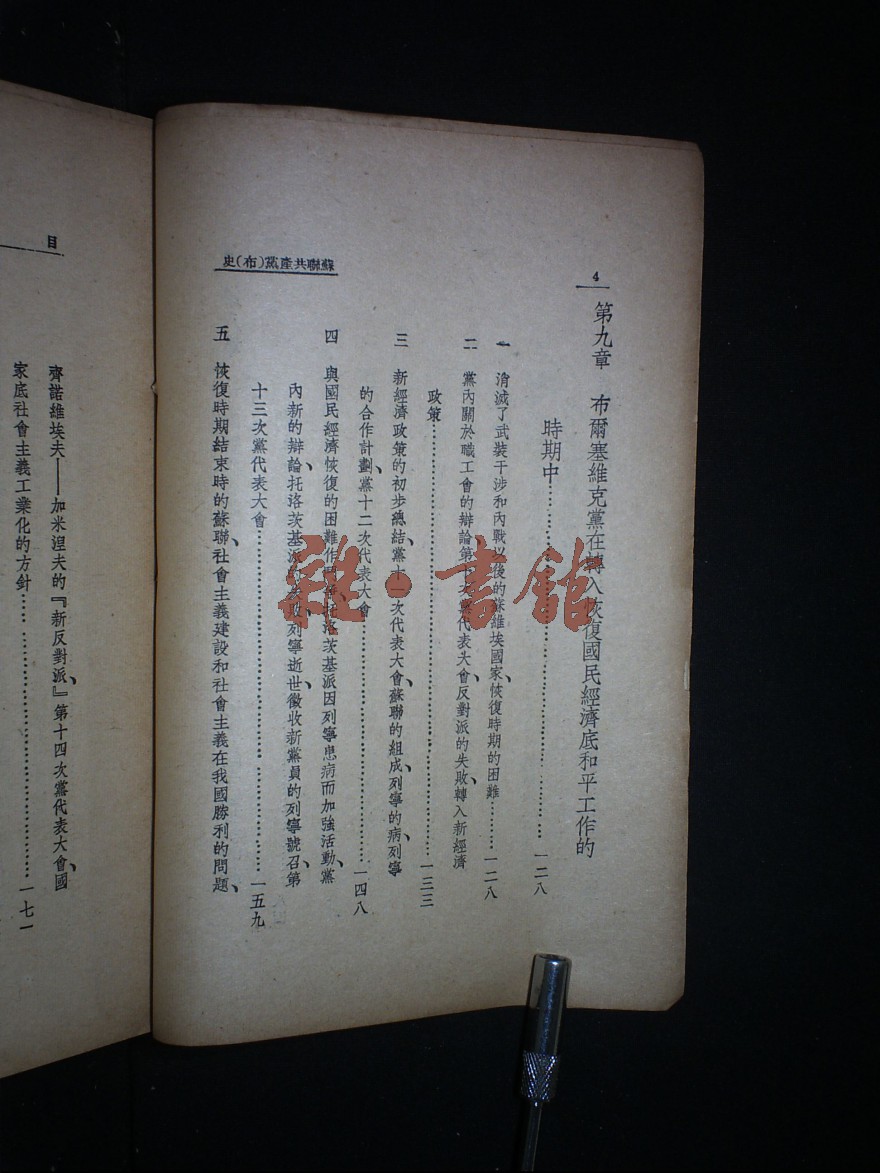 4
第九章　布爾塞維克黨在轉入恢復國民經濟底和平工作的
時期中……………………………一二八
一　消滅了武裝干涉和內戰以後的蘇維埃國家、恢復時期的困難……一二八
二　黨內關於職工會的辯論、第十次黨代表大會、反對派的失敗、轉入新經濟
政策……………………………一三三
三　新經濟政策的初步總結、黨十一次代表大會、蘇聯的組成、列寧的病、列寧
的合作計劃、黨十二次代表大會……………………………一四八
四　與國民經濟恢復的困難作鬥爭、托洛茨基派因列寧患病而加強活動、黨
內新的辯論、托洛茨基派的失敗、列寧逝世、徵收新黨員的列寧號召、第
十三次黨代表大會……………………………一五九
五　恢復時期結束時的蘇聯、社會主義建設和社會主義在我國勝利的問題、
蘇聯共產黨(布)史
目
齊諾維埃夫——加米涅夫的『新反對派』、第十四次黨代表大會、國
家底社會主義工業化的方針……………………………一七一
雜·書館